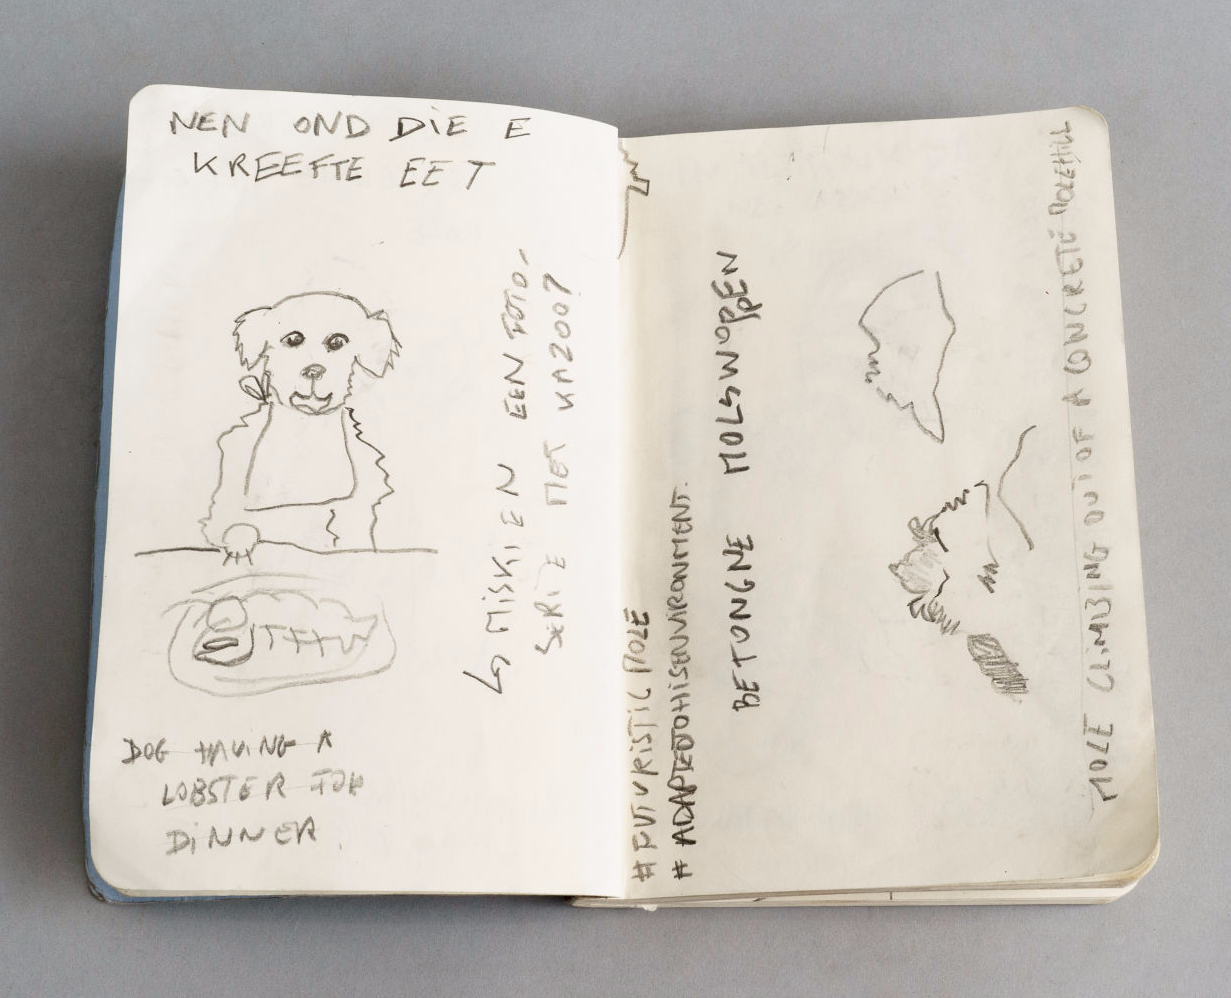 NEN OND DIE E
KREEFTE EET
↳ MISKIEN EEN FOTO-
SERIE MET KAZOO?
DOG HAVING A
LOBSTER FOR
DINNER.
#FUTURISTIC MOLE
#ADAPTEDTOHISENVIRONMENT.
BETONGNE MOLSWOPPEN
MOLE CLIMBING OUT OF A CONCRETE MOLEHILL